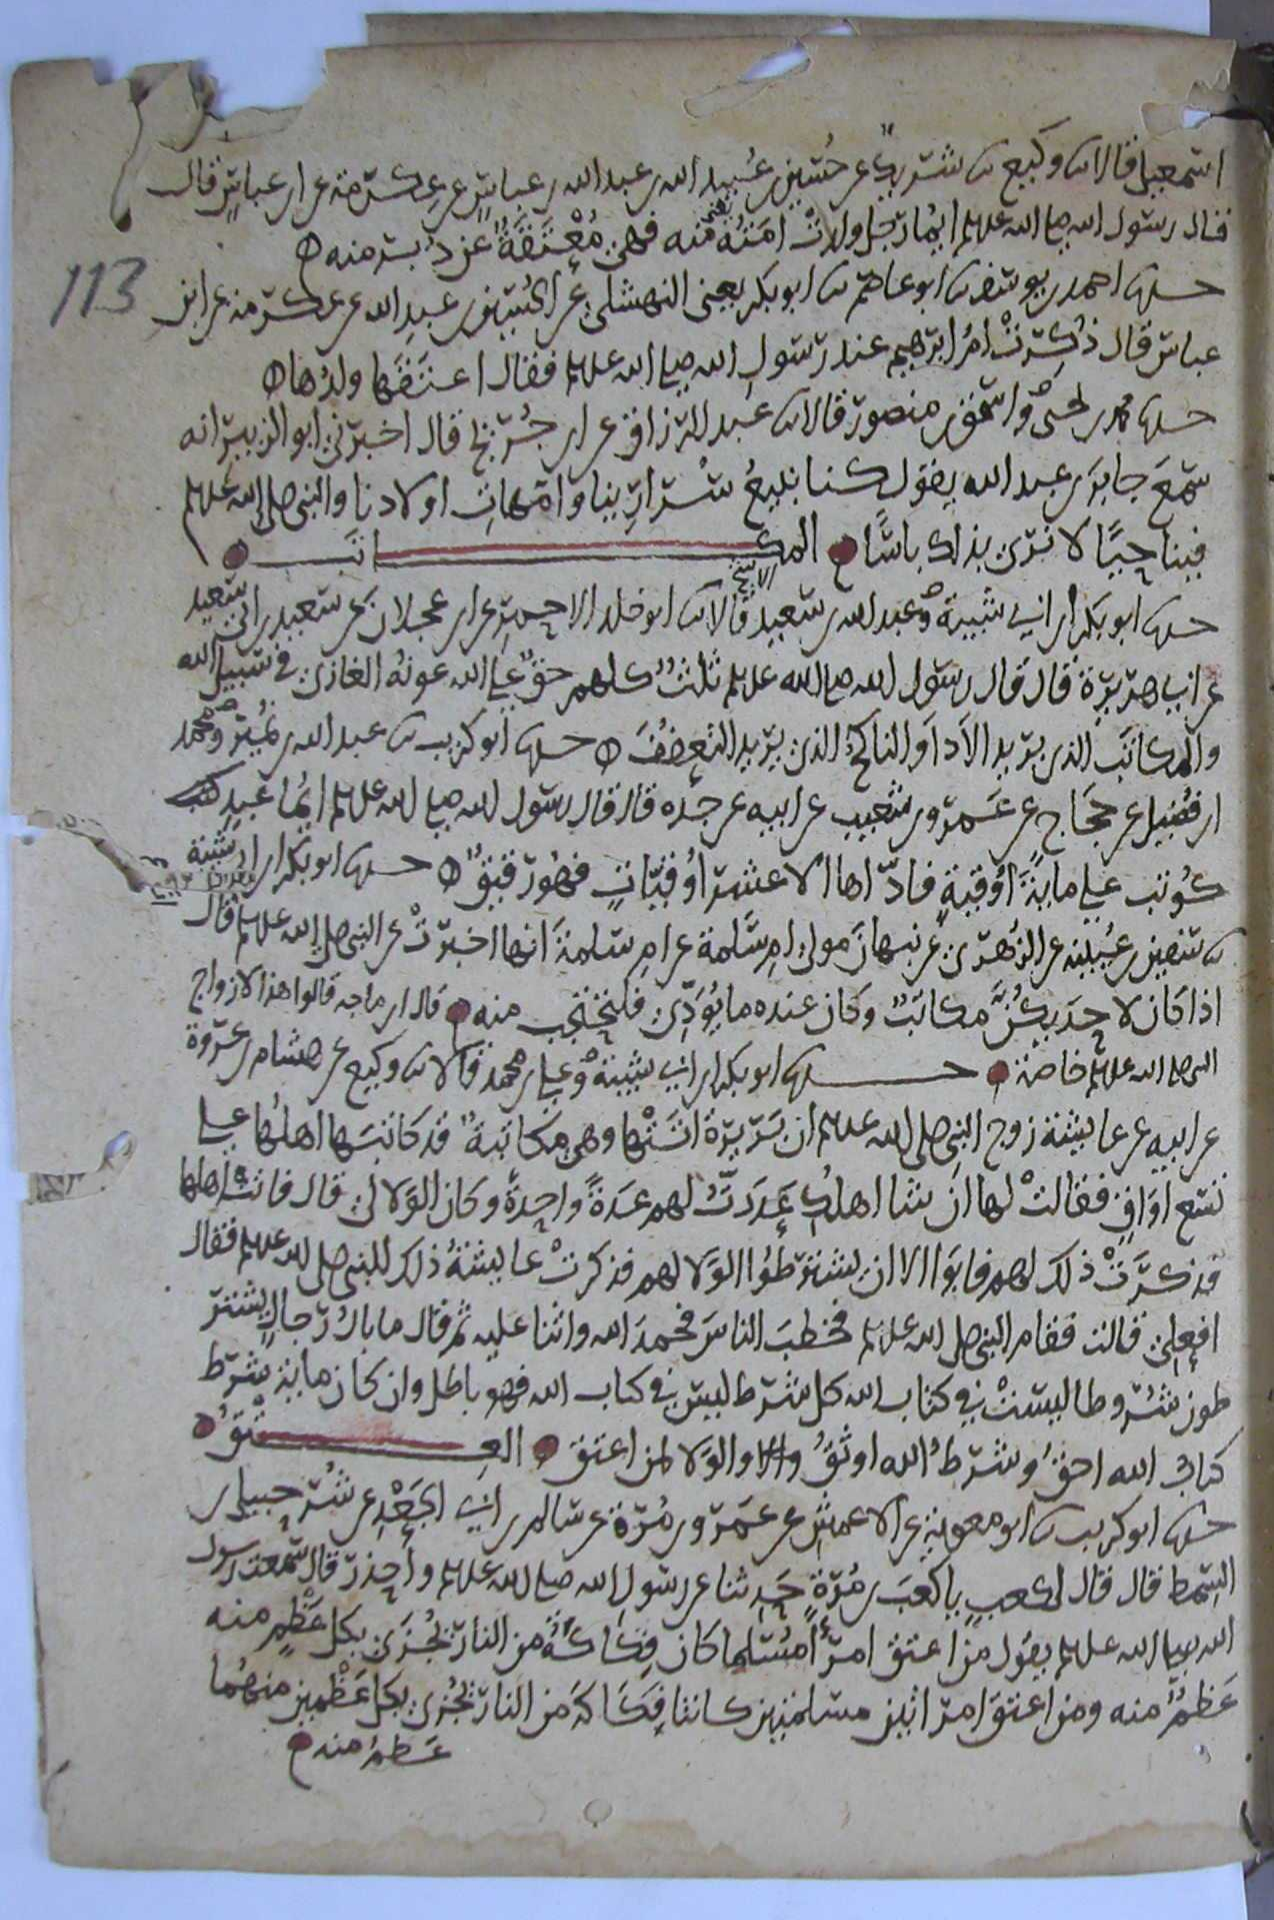 اسمعيل قالا ثنا وكيع ثنا شريك عن حُسَين بن عُبيد الله بن عبد الله بن عباسٍ عن عِكرمة عن ابن عباسٍ قال
قال رسول الله صلى الله عليه وسلم ايُّما رجل ولدَتْ امَتُهُ منه فهي مُعْتَقَةٌ عن دُبُر منه
حدثنا احمد بن يوسف ثنا ابو عاصم ثنا ابو بكر يعني النهشلي عن الحُسَين بن عبد الله عن عكرمة عن ابن
عباس قال ذُكِرَتْ امُّ ابرهيم عند رسول الله صلى الله عليه وسلم فقال اعتَقَها ولدُها
حدثنا محمد بن يحيى واسحق بن منصور قالا ثنا عبد الرزاق عن ابن جُرَيج قال اخبرني ابو الزبير انه
سمعَ جابرَ بن عبد الله يقول كنا نبيعُ سَرارِينا وامهاتِ اولادنا والنبي صلى الله عليه وسلم
فينا حيًّا لا نرى بذلك باسًا المكاتب
حدثنا ابو بكر بن ابي شيبة وعبد الله بن سعيد الاشج قالا ثنا ابو خلد الاحمر عن ابن عجلان عن سعيد بن ابي سعيد
عن ابي هريرة قال قال رسول الله صلى الله عليه وسلم ثلثٌ كلهم حقٌّ على الله عونُهُ الغازي في سبيل الله
والمكاتَب الذي يريد الاداَ والناكحُ الذي يريد التعففَ حدثنا ابو كريب ثنا عبد الله بن نُمَير ومحمد
ابن فُضَيل عن حجاج عن عَمرو بن شعيب عن ابيه عن جده قال قال رسول الله صلى الله عليه وسلم ايُّما عبدٍ
كُوتب على مايةِ اُوقيةٍ فادّاها الا عشرَ اُوقيّاتٍ فهُو رقيقٌ حدثنا ابو بكر بن ابي شيبة
ثنا سفين بن عُيَينة عن الزُهري عن نبهانَ مولى ام سَلمة عن ام سلمةَ انها اخبرتْ عن النبي صلى الله عليه وسلم قال
اذا كان لاحديكُنَّ مكاتَبٌ وكان عنده ما يُوَدِّي فلتحتجب منه قال ابن ماجه قالوا هذا لازواج
النبي صلى الله عليه وسلم خاصة حدثنا ابو بكر بن ابي شيبةَ وعلي بن محمد قالا ثنا وكيع عن هشام بن عروة
عن ابيه عن عايشة زوج النبي صلى الله عليه وسلم ان بَريرة اتَتْها وهي مكاتبةٌ قد كاتبَها اهلُها على
تسع اَوَاقٍ فقالتْ لها ان شا اهلُكِ عَدَدتُ لهم عَدَةً واحِدةً وكان الوَلا لي قال فاتتْ اهلها
فذكَرَتْ ذلك لهم فابَوا الا ان يشترطُوا الوَلا لهم فذكرتْ عايشةُ ذلك للنبي صلى الله عليه وسلم فقال
افعلي قالت فقام النبي صلى الله عليه وسلم فخطبَ الناسَ فحمدَ الله واثنا عليه ثم قال ما بالُ رجالٍ يشتر
طون شُروطا ليسَتْ في كتاب الله كل شرط ليسَ في كتاب الله فهو باطل وان كان ماية شرط
كتابُ الله احقُّ وشرطُ الله اوثقُ والوَلا لمن اعتق العِتقُ
حدثنا ابو كريب ثنا ابو معوية عن الاعمش عن عَمرو بن مُرّة عن سالم بن ابي الجَعْدِ عن شُرَحبيل بن
السِمط قال قال لكعب يا كعبَ بن مُرّةٍ حَدِثنا عن رسول الله صلى الله عليه وسلم واحذر قال سمعت رسول
الله صلى الله عليه وسلم يقول مَن اعتق امرأً مُسلما كان فِكاكَهُ من النار يُجزَى بكل عَظْمٍ منه
عَظمٌ منه ومن اعتقَ امراتين مسلمتين كانتا فِكَاكَهُ من النار يُجزى بكل عَظْمين منهُما
عَظمٌ منه
113